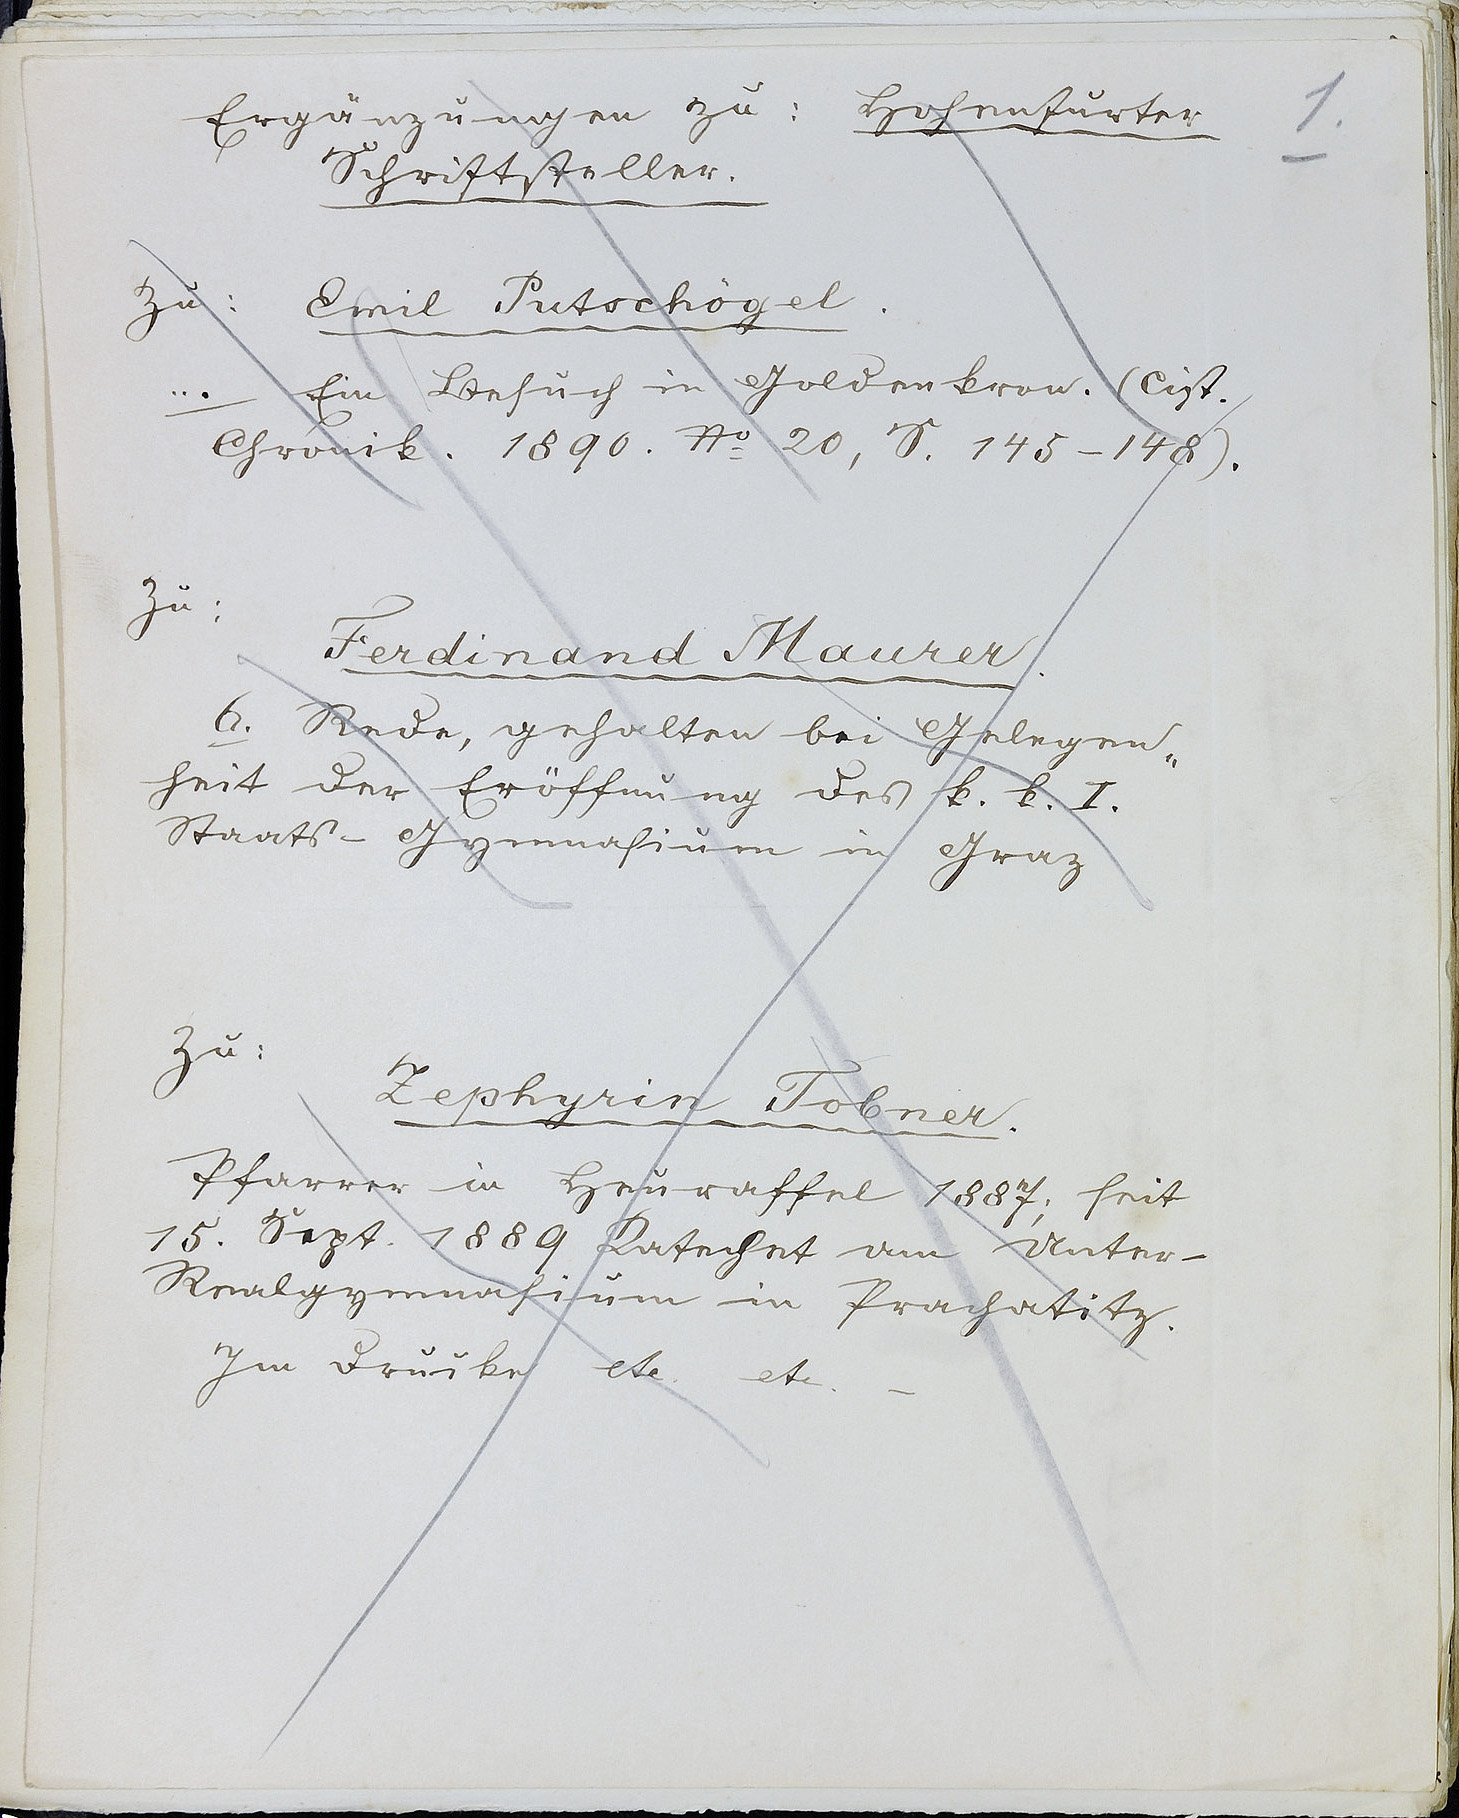 1.
Ergänzungen zu: Hohenfurter
Schriftsteller.
Zu: Emil Putschögel.
... Ein Besuch in Goldenkron. (Cist.
Chronik. 1890. No 20, S. 145-148).
Zu:
Ferdinand Maurer.
6. Rede, gehalten bei Gelegen„
heit der Eröffnung des k. k. I.
Staats-Gymnasium in Graz
Zu:
Zephyrin Tobner.
Pfarrer in Heuraffel 1887; seit
15. Sept. 1889 Katechet am Unter-
Realgymnasium in Prachatitz.
Im Drucke etc. etc. –